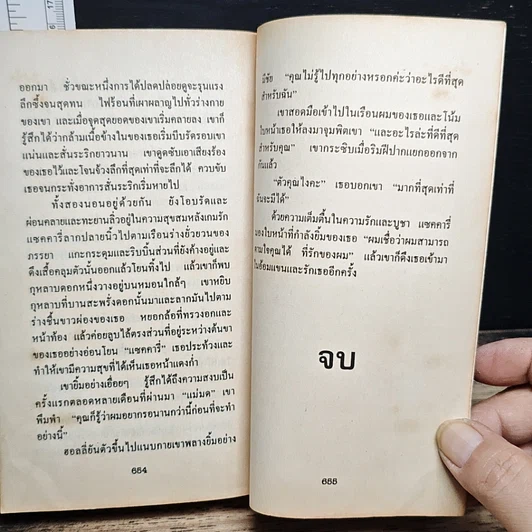 ออกมา ชั่วขณะหนึ่งการได้ปลดปล่อยดูจะรุนแรง
ลึกซึ้งจนสุดทน ไฟร้อนที่เผาผลาญไปทั่วร่างกาย
ของเขา และเมื่อจุดสุดยอดของเขาเริ่มคลายลง เขาก็
รู้สึกได้ว่ากล้ามเนื้อข้างในของเธอเริ่มบีบรัดรอบเขา
แน่นและสั่นระริกยาวนาน เขาดูดซับเอาเสียงร้อง
ของเธอไว้และโจนจ้วงลึกที่สุดเท่าที่จะลึกได้ ควบขับ
เธอจนกระทั่งอาการสั่นระริกเริ่มหายไป
ทั้งสองนอนอยู่ด้วยกัน ยังโอบรัดและ
ผ่อนคลายและทะยานลิ่วอยู่ในความสุขสมหลังเกมรัก
แซคคารี่ลากปลายนิ้วไปตามเรือนร่างยั่วยวนของ
ภรรยา แกะกระดุมและริบบิ้นส่วนที่ยังค้างอยู่และ
ดึงเสื้อคลุมตัวนั้นออกแล้วโยนทิ้งไป แล้วเขาก็พบ
กุหลาบดอกหนึ่งวางอยู่บนหมอนใกล้ๆ เขาหยิบ
กุหลาบที่บานสะพรั่งดอกนั้นมาและลากมันไปตาม
ร่างชื้นขาวผ่องของเธอ หยอกล้อที่ทรวงอกและ
หน้าท้อง แล้วค่อยลูบไล้ตรงส่วนที่อยู่ระหว่างต้นขา
ของเธออย่างอ่อนโยน “แซคคารี่” เธอประท้วงและ
ทำให้เขามีความสุขที่ได้เห็นเธอหน้าแดงก่ำ
เขายิ้มอย่างเอื่อยๆ รู้สึกได้ถึงความสงบเป็น
ครั้งแรกตลอดหลายเดือนที่ผ่านมา “แม่มด” เขา
พึมพำ “คุณก็รู้ว่าผมอยากรอนานกว่านี้ก่อนที่จะทำ
อย่างนี้”
ฮอลลี่ยันตัวขึ้นไปแนบกายเขาพลางยิ้มอย่าง
654
มีชัย “คุณไม่รู้ไปทุกอย่างหรอกค่ะว่าอะไรดีที่สุด
สำหรับฉัน”
เขาสอดมือเข้าไปในเรือนผมของเธอและโน้ม
ใบหน้าเธอให้ลงมาจูมพิตเขา “และอะไรล่ะที่ดีที่สุด
สำหรับคุณ” เขากระซิบเมื่อริมฝีปากแยกออกจาก
กันแล้ว
“ตัวคุณไงคะ” เธอบอกเขา “มากที่สุดเท่าที่
ฉันจะมีได้”
ด้วยความเต็มตื้นในความรักและบูชา แซคคารี่
มองใบหน้าที่กำลังยิ้มของเธอ “ผมเชื่อว่าผมสามารถ
ตามใจคุณได้ ที่รักของผม” แล้วเขาก็ดึงเธอเข้ามา
ในอ้อมแขนและรักเธออีกครั้ง
จบ
655